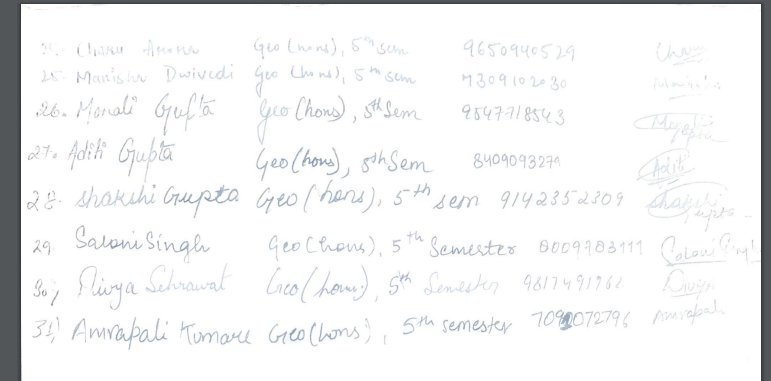 24. Charu Geo (hons), 5th sem 9650940529 Charu
25. Manisha Dwivedi Geo (hons), 5th sem 7309102030 Manisha
26. Monali Gupta Geo (hons), 5th Sem 9547718543
27. Aditi Gupta Geo (hons), 5th Sem 8409093279 Aditi
28. Shakshi Gupta Geo (hons), 5th sem 9142352309 Shakshi Gupta
29. Saloni Singh Geo (hons), 5th Semester 8009983111 Saloni Singh
30) Divya Sehrawat Geo (hons), 5th Semester Divya
31) Amrapali Kumari Geo (hons), 5th semester Amrapali